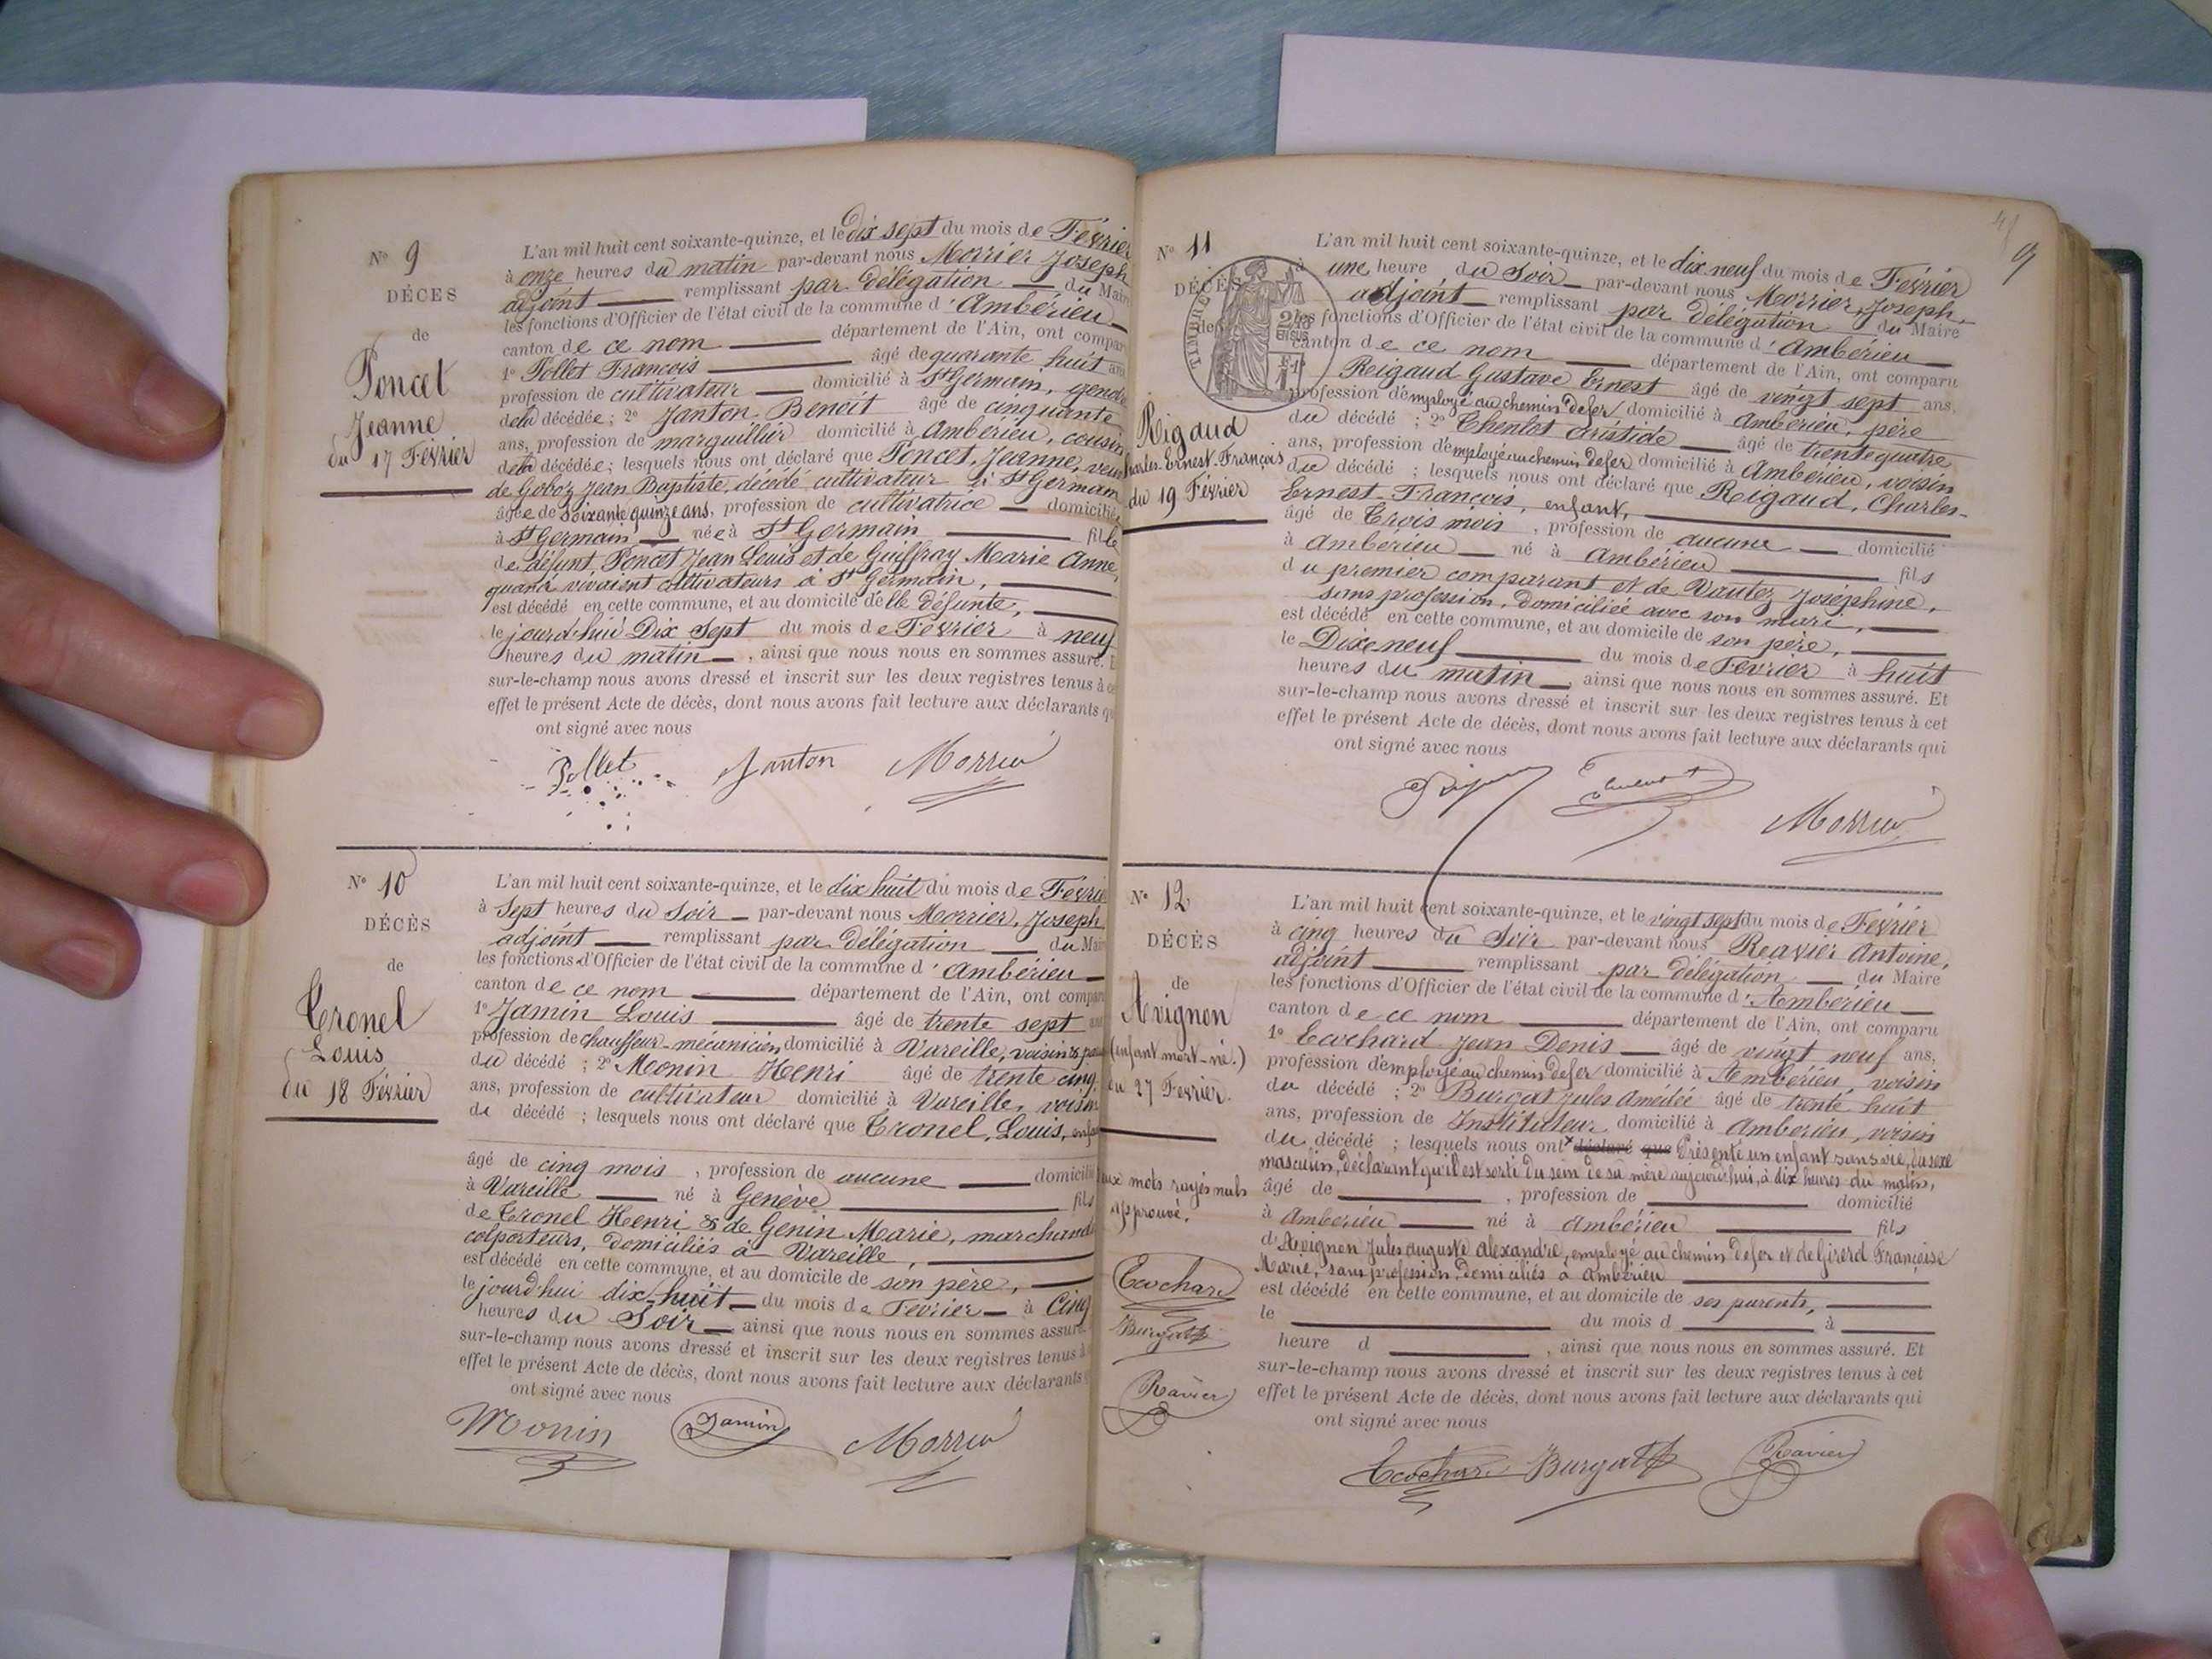 N° 9
DÉCES
de
Poncet
Jeanne
du 17 Février
L'an mil huit cent soixante-quinze, et le dix sept du mois de Février
à onze heures du matin par-devant nous Morrier Joseph
adjoint remplissant par délégation du Maire
les fonctions d'Officier de l'état civil de la commune d'Ambérieu
canton de ce nom département de l'Ain, ont compar
1° Pollet François âgé de quarante huit ans
profession de cultivateur domicilié à St Germain, gendre
de la décédée; 2° Janton Benoît âgé de cinquante
ans, profession de marguillier domicilié à Ambérieu, cousin
de la décédée; lesquels nous ont déclaré que Poncet, Jeanne, veuve
de Goboz Jean Baptiste, décédé cultivateur à St Germain
âgée de soixante quinze ans, profession de cultivatrice domiciliée
à St Germain née à St Germain fille
de défunt Poncet Jean Louis et de Guiffray Marie Anne,
quand vivaient cultivateurs à St Germain,
est décédé en cette commune, et au domicile d'elle défunte,
le jourd'hui Dix Sept du mois de Février à neuf
heures du matin, ainsi que nous nous en sommes assuré. E
sur-le-champ nous avons dressé et inscrit sur les deux registres tenus à ce
effet le présent Acte de décès, dont nous avons fait lecture aux déclarants qu
ont signé avec nous
Pollet Janton Morrier
N° 10
DÉCÈS
de
Cronel
Louis
du 18 Février
L'an mil huit cent soixante-quinze, et le dix huit du mois de Févrie
à Sept heures du Soir par-devant nous Morrier, Joseph
adjoint remplissant par délégation du Mair
les fonctions d'Officier de l'état civil de la commune d'Ambérieu
canton de ce nom département de l'Ain, ont compar
1° Jamin Louis âgé de trente sept ans
profession de chauffeur-mécanicien domicilié à Vareille, voisin
du décédé ; 2° Monin Henri âgé de trente cinq
ans, profession de cultivateur domicilié à Vareille, voisin
du décédé ; lesquels nous ont déclaré que Cronel, Louis, enfan
âgé de cinq mois, profession de aucune domicilié
à Vareille né à Genève fils
de Cronel Henri & de Genin Marie, marchands
colporteurs, domiciliés à Vareille,
est décédé en cette commune, et au domicile de son père,
le jourd'hui dix-huit du mois de Février à Cinq
heures du Soir ainsi que nous nous en sommes assuré.
sur-le-champ nous avons dressé et inscrit sur les deux registres tenus à
effet le présent Acte de décès, dont nous avons fait lecture aux déclarants
ont signé avec nous
Monin Jamin Morrier
9
N° 11
DÉCÈS
de
TIMBRE
Rigaud
Charles-Ernest-François
du 19 Février
L'an mil huit cent soixante-quinze, et le dix neuf du mois de Février
à une heure du Soir par-devant nous Morrier, Joseph,
adjoint remplissant par délégation du Maire
les fonctions d'Officier de l'état civil de la commune d'Ambérieu
canton de ce nom département de l'Ain, ont comparu
Reigaud Gustave Ernest âgé de vingt sept ans,
profession d'employé au chemin de fer domicilié à Ambérieu, père
du décédé ; 2° Chenlot Aristide âgé de trente quatre
ans, profession d'employé au chemin de fer domicilié à Ambérieu, voisin
du décédé ; lesquels nous ont déclaré que Reigaud, Charles-
Ernest-François, enfant,
âgé de Trois mois, profession de aucune domicilié
à Ambérieu né à Ambérieu fils
du premier comparant et de Vautez Joséphine,
sans profession, domiciliée avec son mari,
est décédé en cette commune, et au domicile de son père,
le Dixe neuf du mois de Février à huit
heures du matin, ainsi que nous nous en sommes assuré. Et
sur-le-champ nous avons dressé et inscrit sur les deux registres tenus à cet
effet le présent Acte de décès, dont nous avons fait lecture aux déclarants qui
ont signé avec nous
Morrier
N° 12
DÉCÈS
de
Avignon
(enfant mort-né.)
du 27 Février.
L'an mil huit cent soixante-quinze, et le vingt sept du mois de Février
à cinq heures du Soir par-devant nous Reavier Antoine,
adjoint remplissant par délégation du Maire
les fonctions d'Officier de l'état civil de la commune d'Ambérieu
canton de ce nom département de l'Ain, ont comparu
1° Ecochard Jean Denis âgé de vingt neuf ans,
profession d'employé au chemin de fer domicilié à Ambérieu, voisin
du décédé ; 2° Burgat Jules Amédée âgé de trente huit
ans, profession de Instituteur domicilié à Ambérieu, voisin
du décédé ; lesquels nous ont déclaré que Présenté un enfant sans vie, du sexe
masculin, déclarant qu'il est sorti du sein de sa mère aujourd'hui, à dix heures du matin,
âgé de , profession de domicilié
à Ambérieu né à Ambérieu fils
d'Avignon Jules Auguste Alexandre, employé au chemin de fer et de Girerd Françoise
Marie, sans profession, domiciliés à Ambérieu
est décédé en cette commune, et au domicile de ses parents,
le du mois d à
heure d , ainsi que nous nous en sommes assuré. Et
sur-le-champ nous avons dressé et inscrit sur les deux registres tenus à cet
effet le présent Acte de décès, dont nous avons fait lecture aux déclarants qui
ont signé avec nous
Ecochard Burgat Ravier
eux mots rayés nuls
approuvé.
Ecochard
Burgat
Ravier